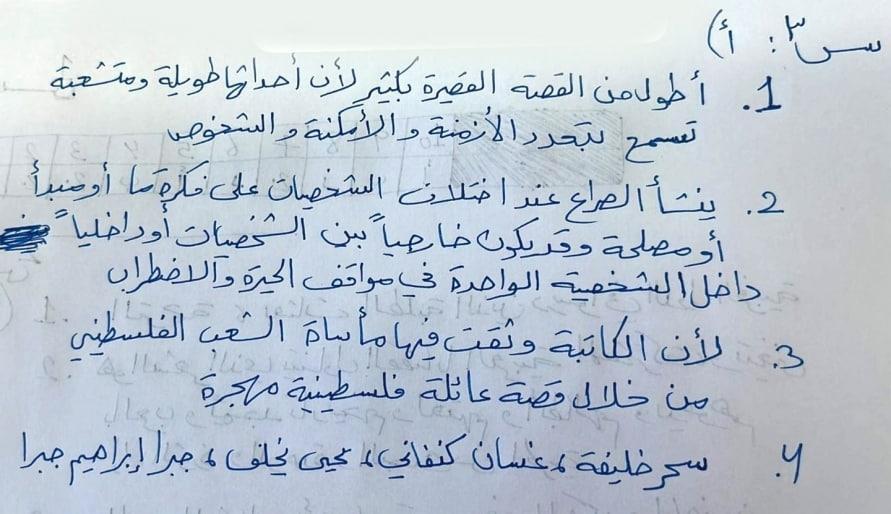 س٣: أ)
1. أطول من القصة القصيرة بكثير لأن أحداثها طويلة ومتشعبة
تسمح بتعدد الأزمنة والأمكنة والشخوص
2. ينشأ الصراع عند اختلاف الشخصيات على فكرة ما أو مبدأ
أو مصلحة وقد يكون خارجياً بين الشخصيات أو داخلياً
داخل الشخصية الواحدة في مواقف الحيرة والاضطراب
3. لأن الكاتبة وثقت فيها مأساة الشعب الفلسطيني
من خلال قصة عائلة فلسطينية مهجرة
4. سحر خليفة، غسان كنفاني، يحيى يخلف، جبرا إبراهيم جبرا